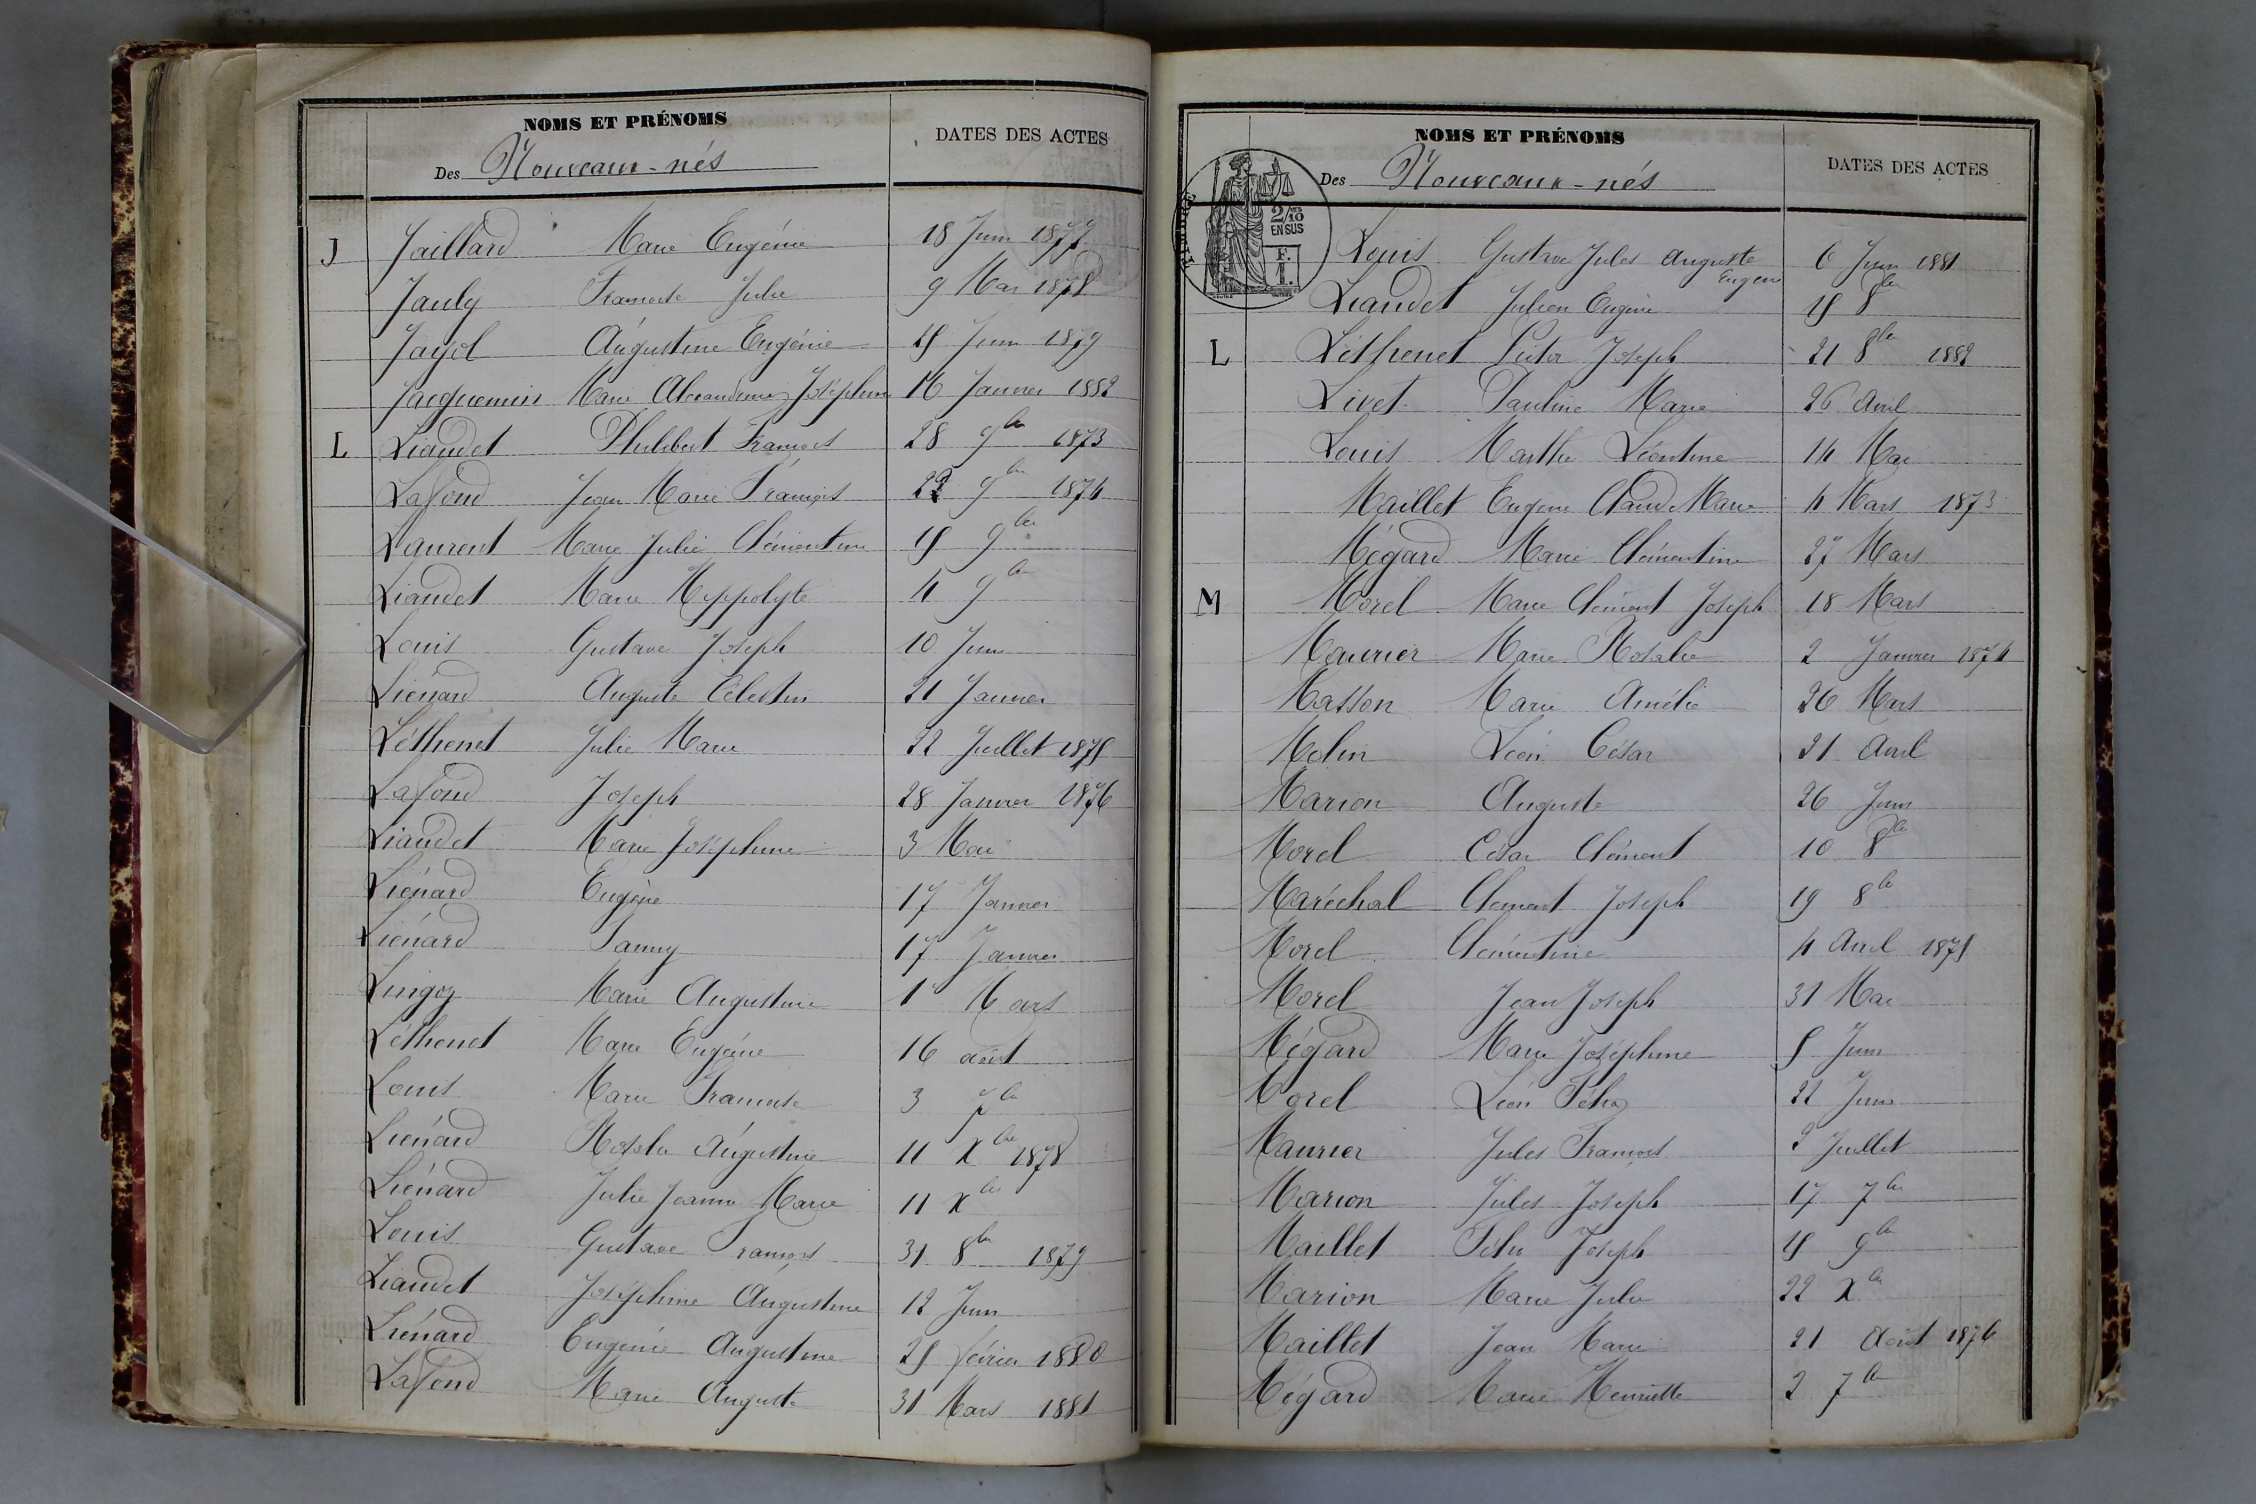 NOMS ET PRÉNOMS
DATES DES ACTES
Des Nouveaux-nés
J Jaillard Marie Eugénie 18 Juin 1877
Jauly Françoise Julie 9 Mai 1878
Jayol Augustine Eugénie 15 Juin 1879
Jacquemin Marie Alexandrine Joséphine 16 Janvier 1882
L Liaudet Philibert François 28 9bre 1873
Lafond Jean Marie François 9bre 1874
Laurent Marie Julie Clémentine 15 9bre
Liaudet Marie Hippolyte 4 9bre
Louis Gustave Joseph 10 Juin
Liénard Auguste Célestin 21 Janvier
Léthenet Julie Marie 22 Juillet 1875
Lafond Joseph 28 Janvier 1876
Liaudet Marie Joséphine 3 Mai
Liénard Eugène 17 Janvier
Liénard Fanny 17 Janvier
Lingoz Marie Augustine 1r Mars
Léthenet Marie Eugénie 16 août
Louis Marie Françoise 3 7bre
Liénard Rosalie Augustine 11 Xbre 1878
Liénard Julie Jeanne Marie 11 Xbre
Louis Gustave François 31 8bre 1879
Liaudet Joséphine Augustine 12 Juin
Liénard Eugénie Augustine 25 février 1880
Lafond Marie Auguste 31 Mars 1881
NOMS ET PRÉNOMS
DATES DES ACTES
Des Nouveaux-nés
2/10 EN SUS
F. 1.
Louis Gustave Jules Auguste Eugène 6 Juin 1881
Liaudet Julien Eugène 15 8bre
L Léthenet Victor Joseph 21 8bre 1882
Livet Pauline Marie 26 Avril
Louis Marthe Léontine 14 Mai
Maillet Eugène Claude Marie 4 Mars 1873
Mégard Marie Clémentine 27 Mars
M Morel Marie Clément Joseph 18 Mars
Maurier Marie Rosalie 2 Janvier 1874
Masson Marie Amélie 26 Mars
Molin Léon César 21 Avril
Marion Auguste 26 Juin
Morel César Clément 10 8bre
Maréchal Clément Joseph 19 8bre
Morel Clémentine 4 Avril 1875
Morel Jean Joseph 31 Mai
Mégard Marie Joséphine 5 Juin
Morel Léon Félix 22 Juin
Maurier Jules François 2 Juillet
Marion Jules Joseph 17 7bre
Maillet Félix Joseph 15 9bre
Marion Marie Julie 22 Xbre
Maillet Jean Marie 21 Août 1876
Mégard Marie Henriette 2 7bre